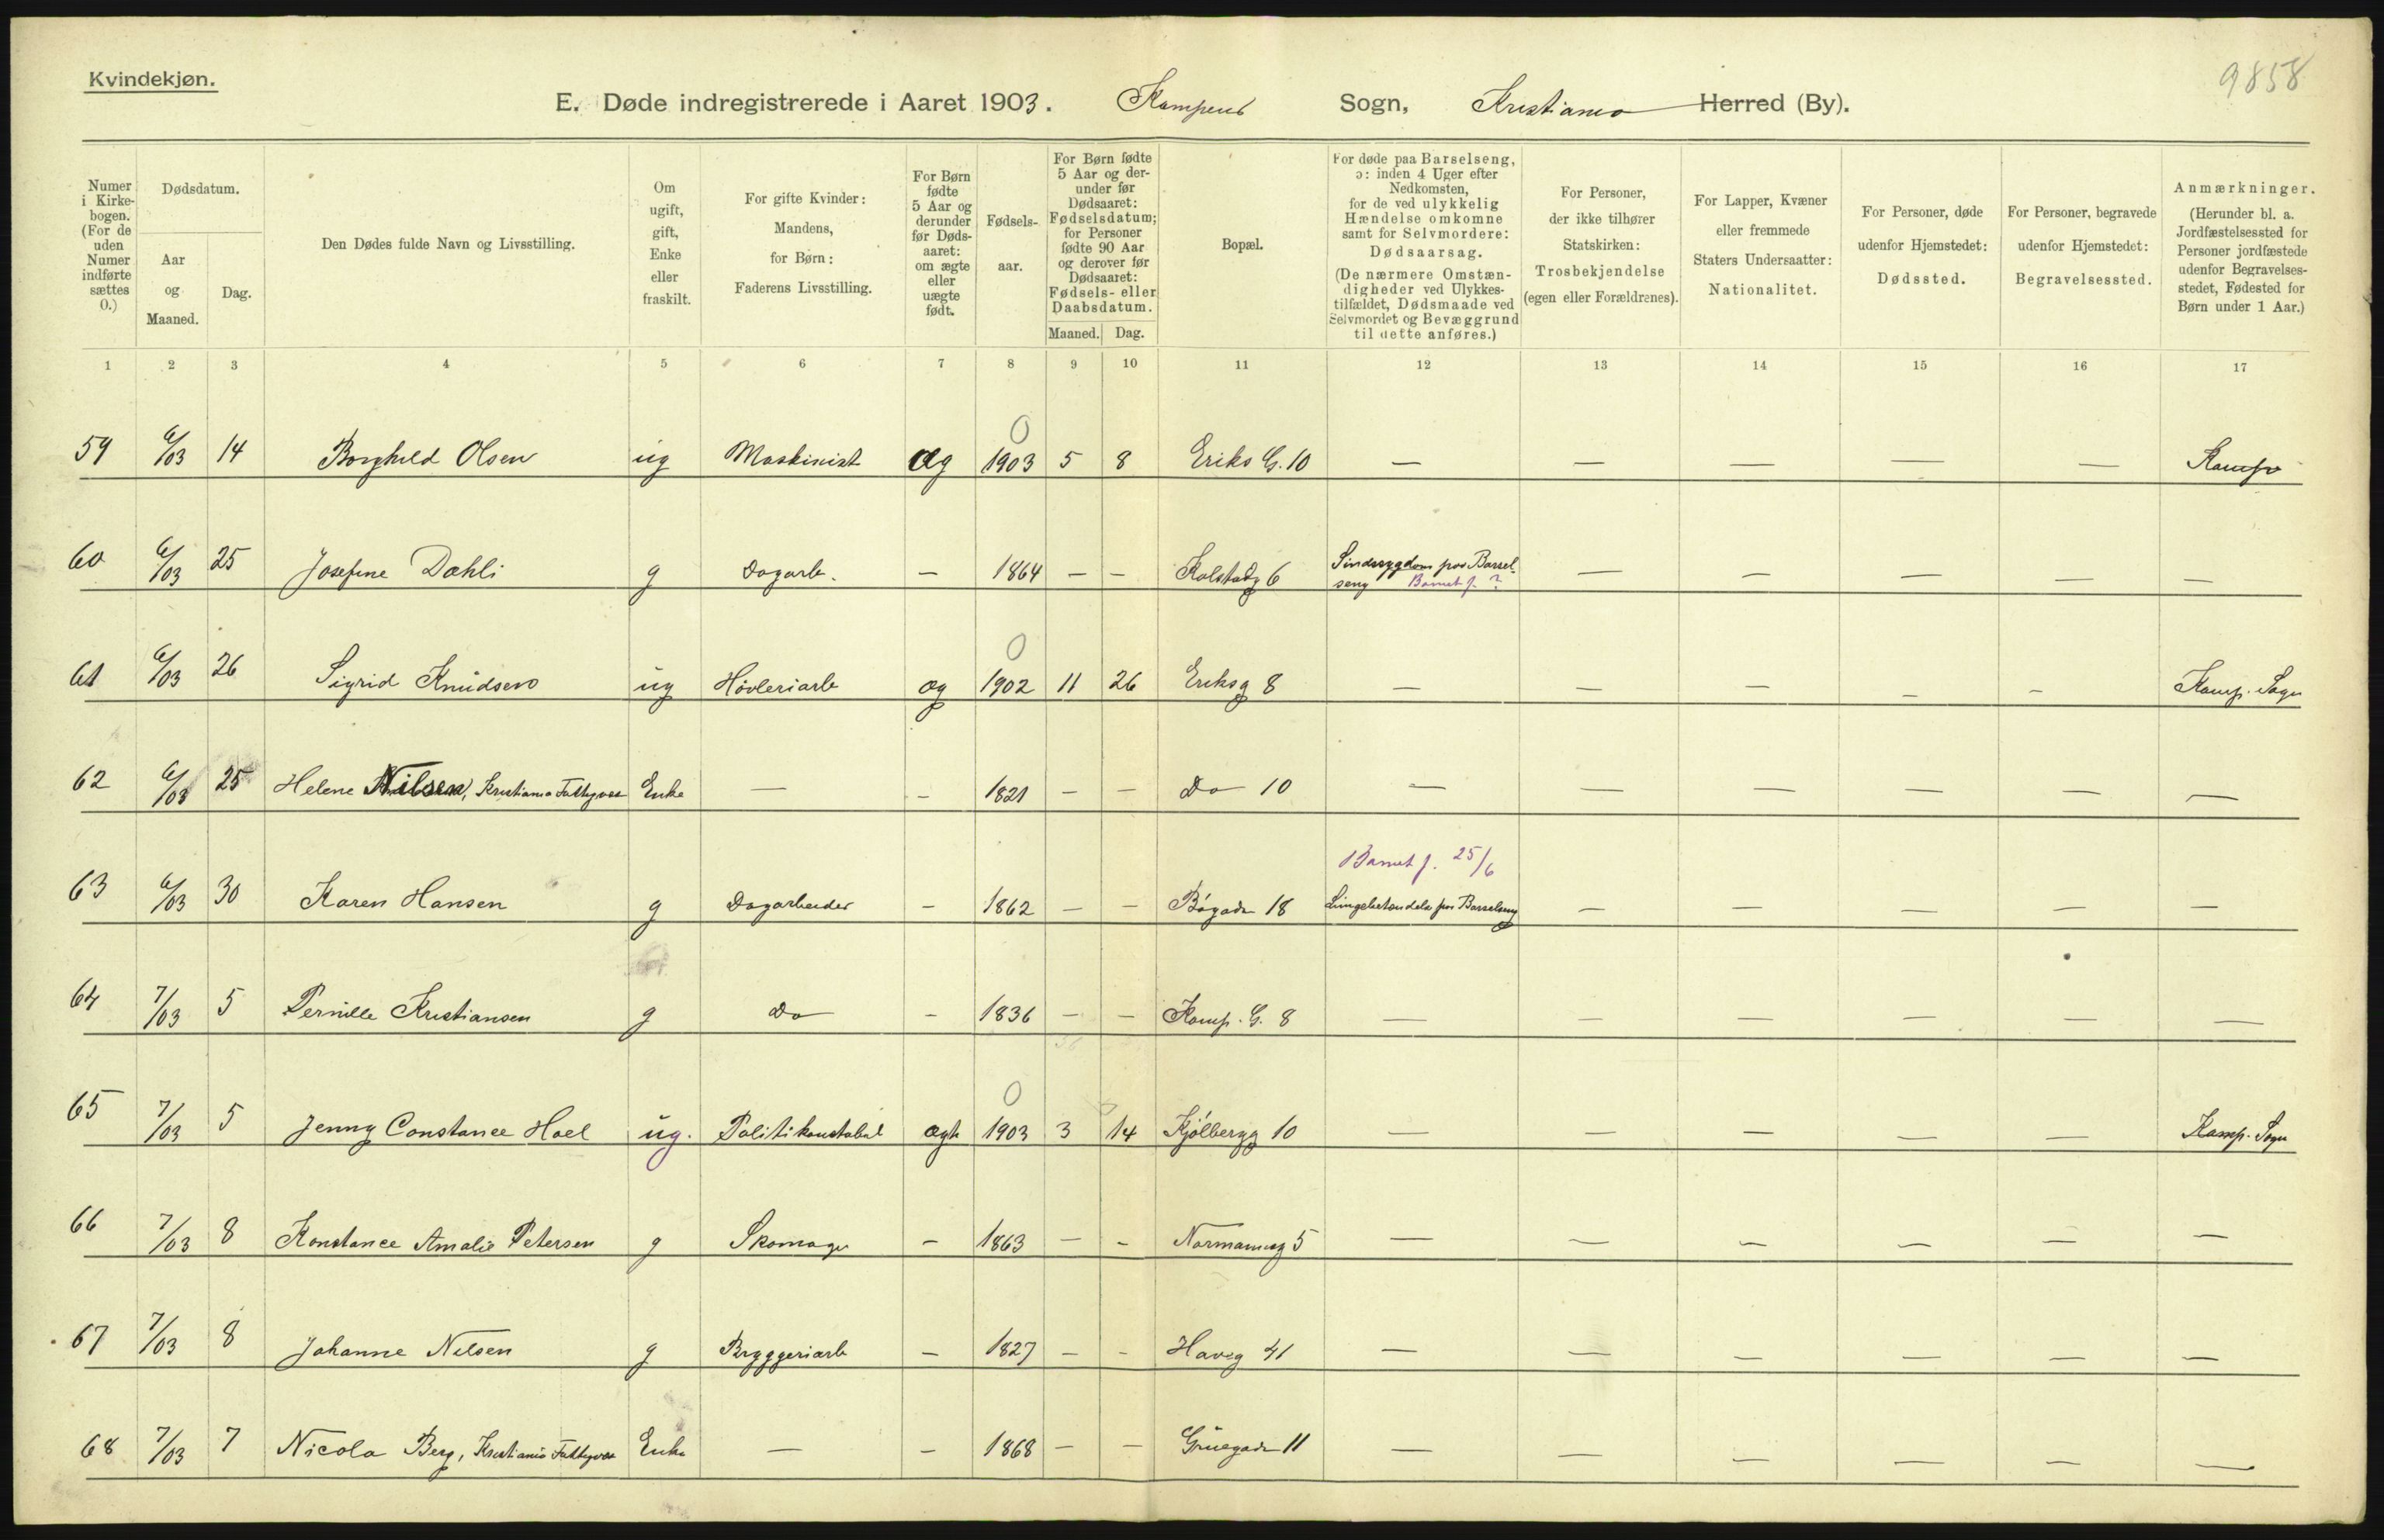 Kvindekjøn.
9858
E. Døde indregistrerede i Aaret 1903. Kampens Sogn, Kristiania Herred (By).
Numer i Kirkebogen. (For de uden Numer indførte sættes 0.)
Dødsdatum.
Aar og Maaned.
Dag.
Den Dødes fulde Navn og Livsstilling.
Om ugift, gift, Enke eller fraskilt.
For gifte Kvinder: Mandens, for Børn: Faderens Livsstilling.
For Børn fødte 5 Aar og derunder før Dødsaaret: om ægte eller uægte født.
Fødselsaar.
For Børn fødte 5 Aar og derunder før Dødsaaret: Fødselsdatum; for Personer fødte 90 Aar og derover før Dødsaaret: Fødsels- eller Daabsdatum.
Maaned. Dag.
Bopæl.
For døde paa Barselseng, ɔ: inden 4 Uger efter Nedkomsten, for de ved ulykkelig Hændelse omkomne samt for Selvmordere: Dødsaarsag. (De nærmere Omstændigheder ved Ulykkestilfældet, Dødsmaade ved Selvmordet og Bevæggrund til dette anføres.)
For Personer, der ikke tilhører Statskirken: Trosbekjendelse (egen eller Forældrenes).
For Lapper, Kvæner eller fremmede Staters Undersaatter: Nationalitet.
For Personer, døde udenfor Hjemstedet: Dødssted.
For Personer, begravede udenfor Hjemstedet: Begravelsessted.
Anmærkninger. (Herunder bl. a. Jordfæstelsessted for Personer jordfæstede udenfor Begravelsesstedet, Fødested for Børn under 1 Aar.)
1 2 3 4 5 6 7 8 9 10 11 12 13 14 15 16 17
0
59 6/03 14 Borghild Olsen ug Maskinist æg 1903 5 8 Eriks G. 10 — — — — — Kamp
60 6/03 25 Josefine Dahli g Dagarb. — 1864 — — Kolstadg 6 Sindssygdom paa Barselseng Barnet f. ? — — — — —
0
61 6/03 26 Sigrid Knudsen ug Høvleriarb æg 1902 11 26 Eriksg 8 — — — — — Kamp. Sogn
62 6/03 25 Helene Nilsen, Kristiania Fattigvæs Enke — — 1821 — — Do 10 — — — — — —
Barnet f. 25/6
63 6/03 30 Karen Hansen g Dagarbeider — 1862 — — Bøgade 18 Lungebetændelse paa Barselseng — — — — —
64 7/03 5 Pernille Kristiansen g Do — 1836 — — Kamp. G. 8 — — — — — —
0
65 7/03 5 Jenny Constance Hoel ug. Politikonstabel ægte 1903 3 14 Kjølbergg 10 — — — — — Kamp. Sogn
66 7/03 8 Konstance Amalie Petersen g Skomager — 1863 — — Normannsg 5 — — — — — —
67 7/03 8 Johanne Nilsen g Bryggeriarb — 1827 — — Haveg 41 — — — — — —
68 7/03 7 Nicola Berg, Kristiania Fattigvæs Enke — — 1868 — — Grüegade 11 — — — — — —